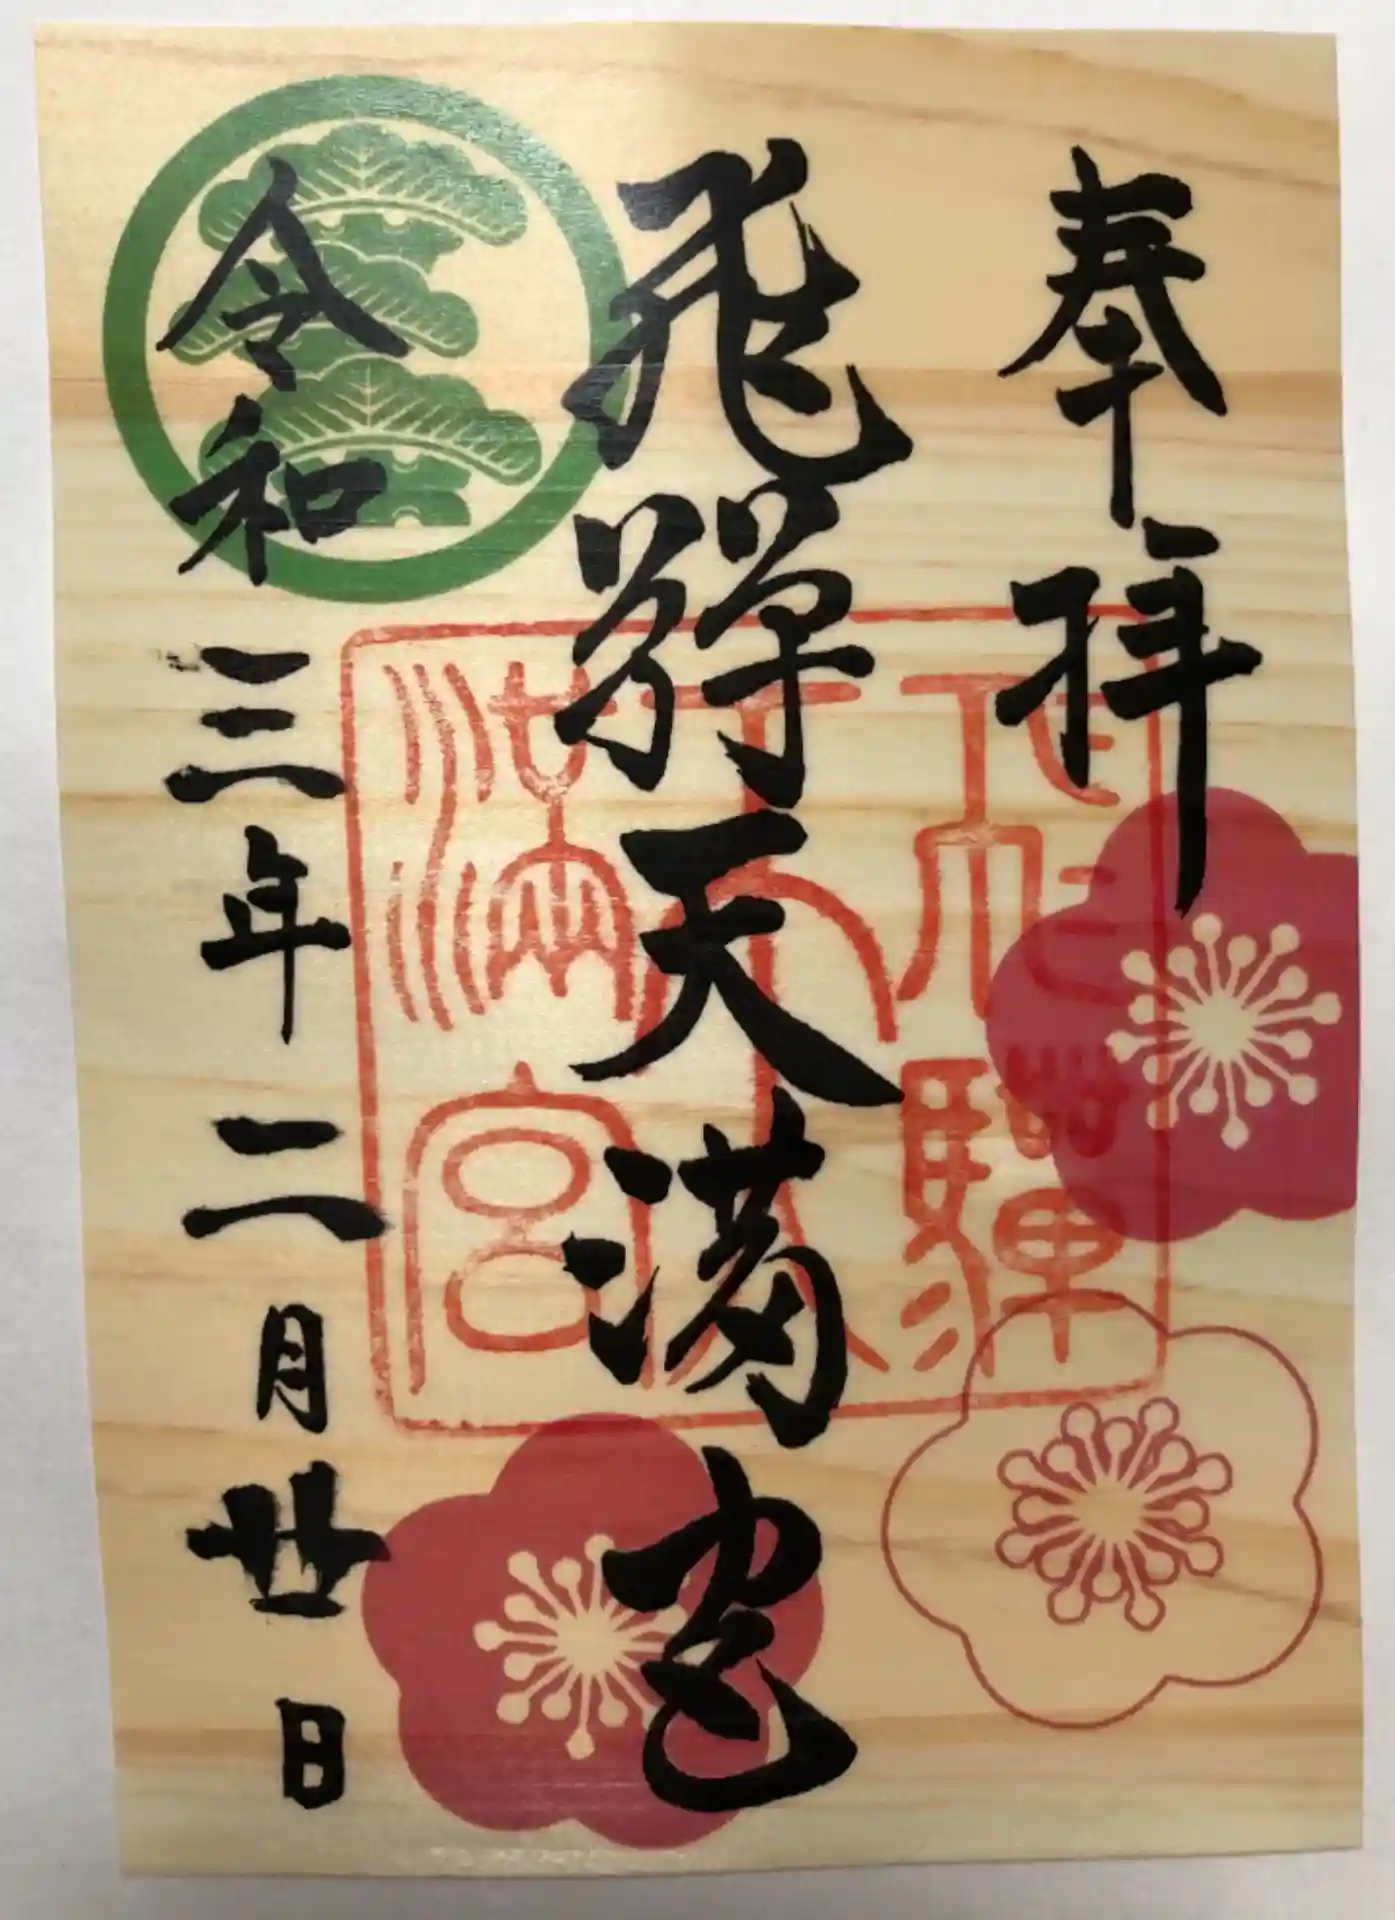 奉拝
飛騨天満宮
令和三年二月廿日
飛驒
天
滿宮